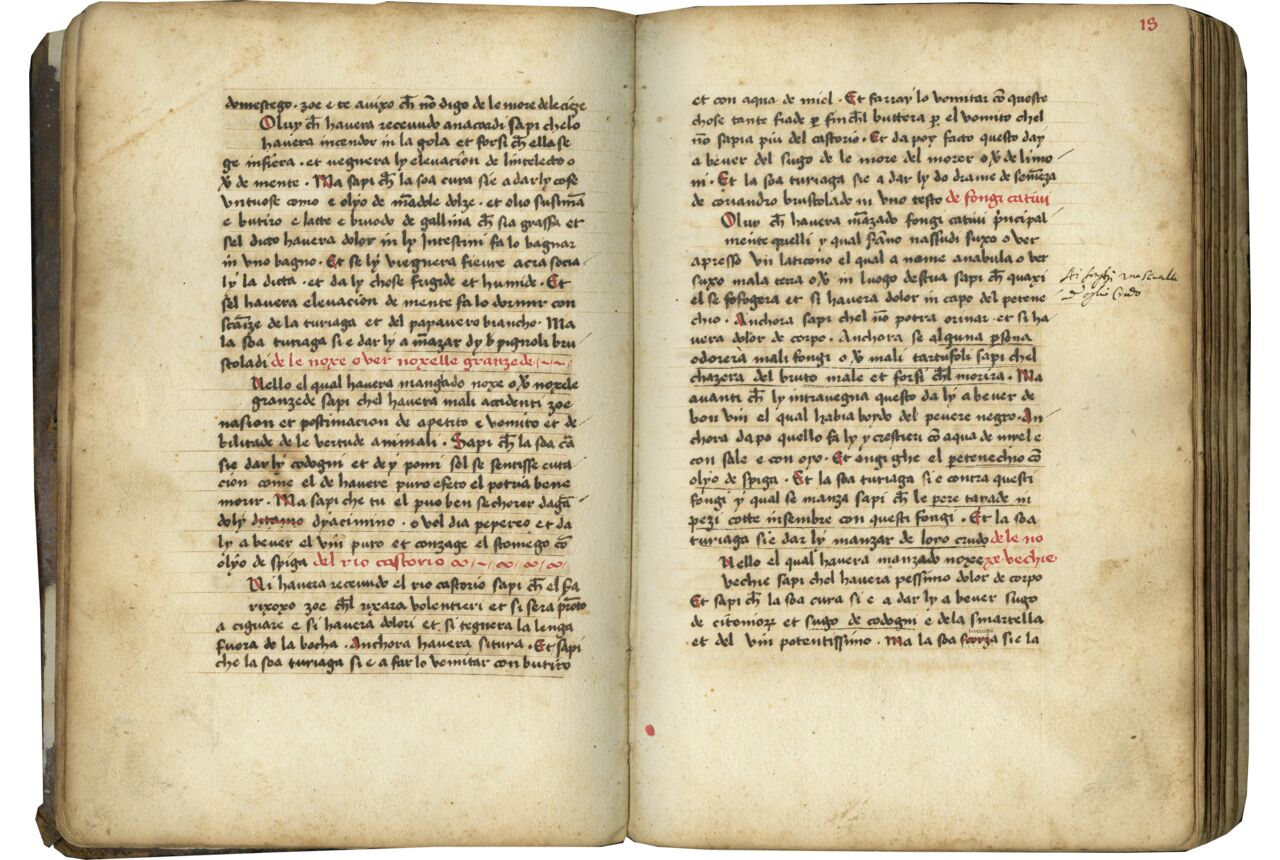 domestego · zoe e te avixo ch̄ nō digo de le more dele cieze
Oluy ch̄ havera recevudo anacardi sapi chelo
havera incendor in la gola et forsi ch̄ ella se
ge infiera · et vegnera ly elevaciōn de lintelecto o
v̄ de mente · Ma sapi ch̄ la soa cura sie a dar ly cose
untuose como e olyo de mādole dolze · et olio susimā
e butiro e latte e bruodo de gallina ch̄ sia grassa et
sel dicto havera dolor in ly Intestini fa lo bagnar
in uno bagno · Et se ly viegnera fievre acra socia
ly la dicta · et da ly chose frigide et humide · Et
sel havera elevacion de mente fa lo dormir con
de la turiaga et del papavero biancho · Ma
la soa turiaga si e dar ly a māzar dy pignoli bru
stoladi de le noxe o ver noxelle granzede
Nello el qual havera mangado noxe o v̄ noxele
granzede sapi chel havera mali accidenti zoe
nasion et postimacion de apetito e vomito et de
bilitade de le vertude animali · Sapi ch̄ la soa cūa
sie dar ly codogni et de y pomi sel se sentisse euta
cion come el de havere puro efeto el potria bene
morir · Ma sapi che tu el puo ben sechorer dagā
doly ditamo dyacimino · o vol dia pepereo et da
ly a bever el vin puro et conzage el stomego cō
olyo de spiga del rio castorio
Ni havera recevudo el rio castorio sapi ch̄ el sa
rixoxo zoe ch̄l rixara volentieri et si sera prōto
a ciguare e si havera dolori et si tegnera la lenga
fuora de la bocha · Anchora havera situra · Et sapi
che la soa turiaga si e a far lo vomitar con butiro
18
et con aqua de miel · Et farray lo vomitar cō queste
chose tante fiade p̄ fin ch̄l buttera p̄ el vomito chel
nō sapia piu del castorio · Et da poy facto questo day
a bever del sugo de le more del morer o v̄ de limo
ni · Et la soa turiaga sie a dar ly do drame de semēza
de coriandro brustolado in uno testo de fongi cativi
Oluy ch̄ havera māzado fongi cativi p̄ncipal
mente quelli y qual fāno nassudi suxo o ver
apresso un laticono el qual a nome anabula o ver
suxo mala tera o v̄ in luogo destua sapi ch̄ quaxi
el se sofogera et si havera dolor in capo del petene
chio · Anchora sapi chel nō potra orinar · et si ha
vera dolor de corpo · Anchora se alguna p̄sona
odorera mali fongi o v̄ mali tartufoli sapi chel
chazera del bruto male et forsi ch̄l morira · Ma
avanti ch̄ ly intravegna questo da ly a bever de
bon vin el qual habia bordo del pevere negro · An
chora dapo quello fa ly y crestieri cō aqua de mele
con sale e con oyo · Et ongi ghe el petenechio cō
olyo de spiga · Et la soa turiaga si e contra questi
fongi y qual se manza sapi ch̄ le pere tarade in
pezi cotte insembre con questi fongi · Et la soa
turiaga si e dar ly manzar de loro crudo de le no
Nello el qual havera manzado noxe xe vechie
vechie sapi chel havera pessimo dolor de corpo
Et sapi ch̄ la soa cura si e a dar ly a bever sugo
de citomorx et sugo de codogni e dela smartella
turiaga
et del vin potentissimo · Ma la soa scorza sie la